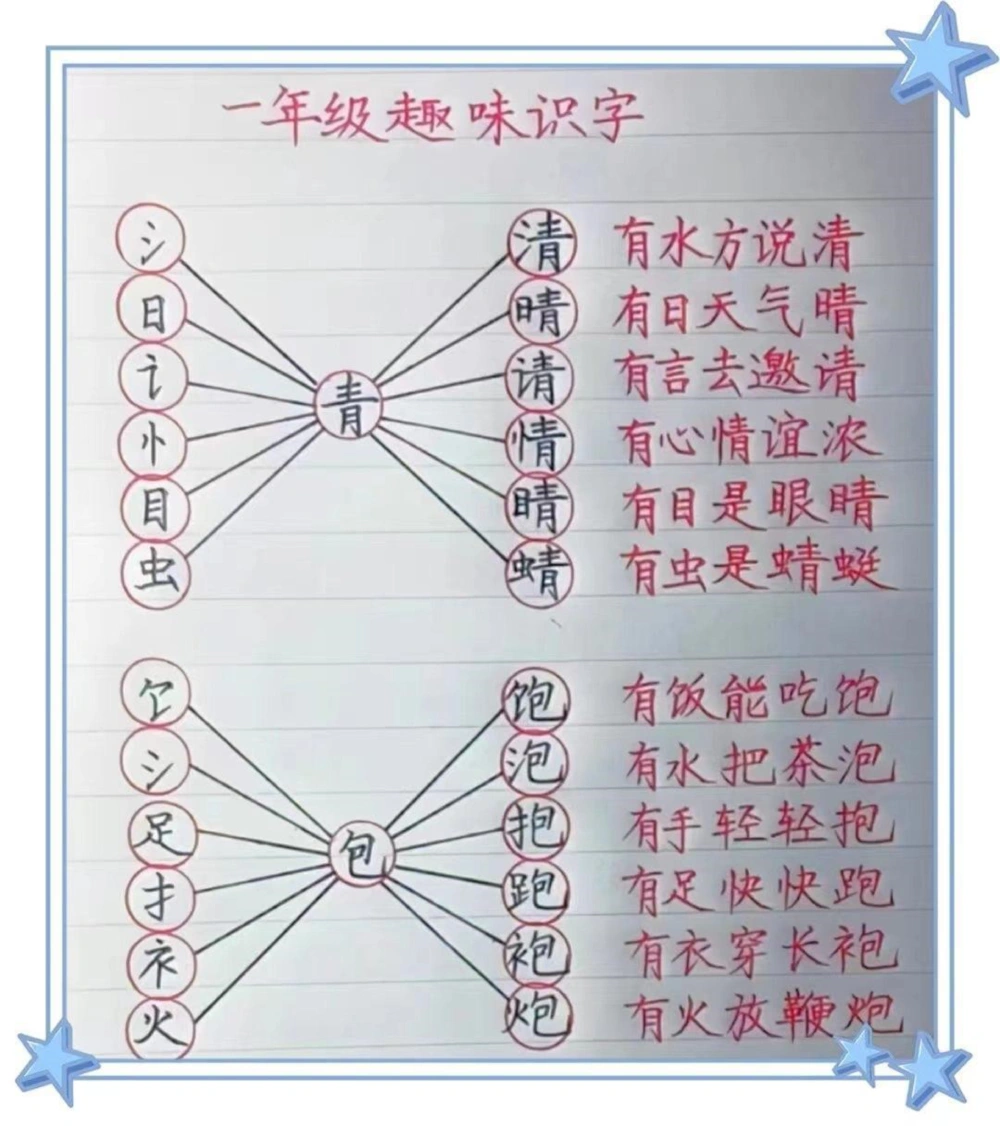 一年级趣味识字
氵 清 有水方说清
日 晴 有日天气晴
讠 请 有言去邀请
青
忄 情 有心情谊浓
目 睛 有目是眼睛
虫 蜻 有虫是蜻蜓
饣 饱 有饭能吃饱
氵 泡 有水把茶泡
足 抱 有手轻轻抱
包
扌 跑 有足快快跑
衤 袍 有衣穿长袍
火 炮 有火放鞭炮